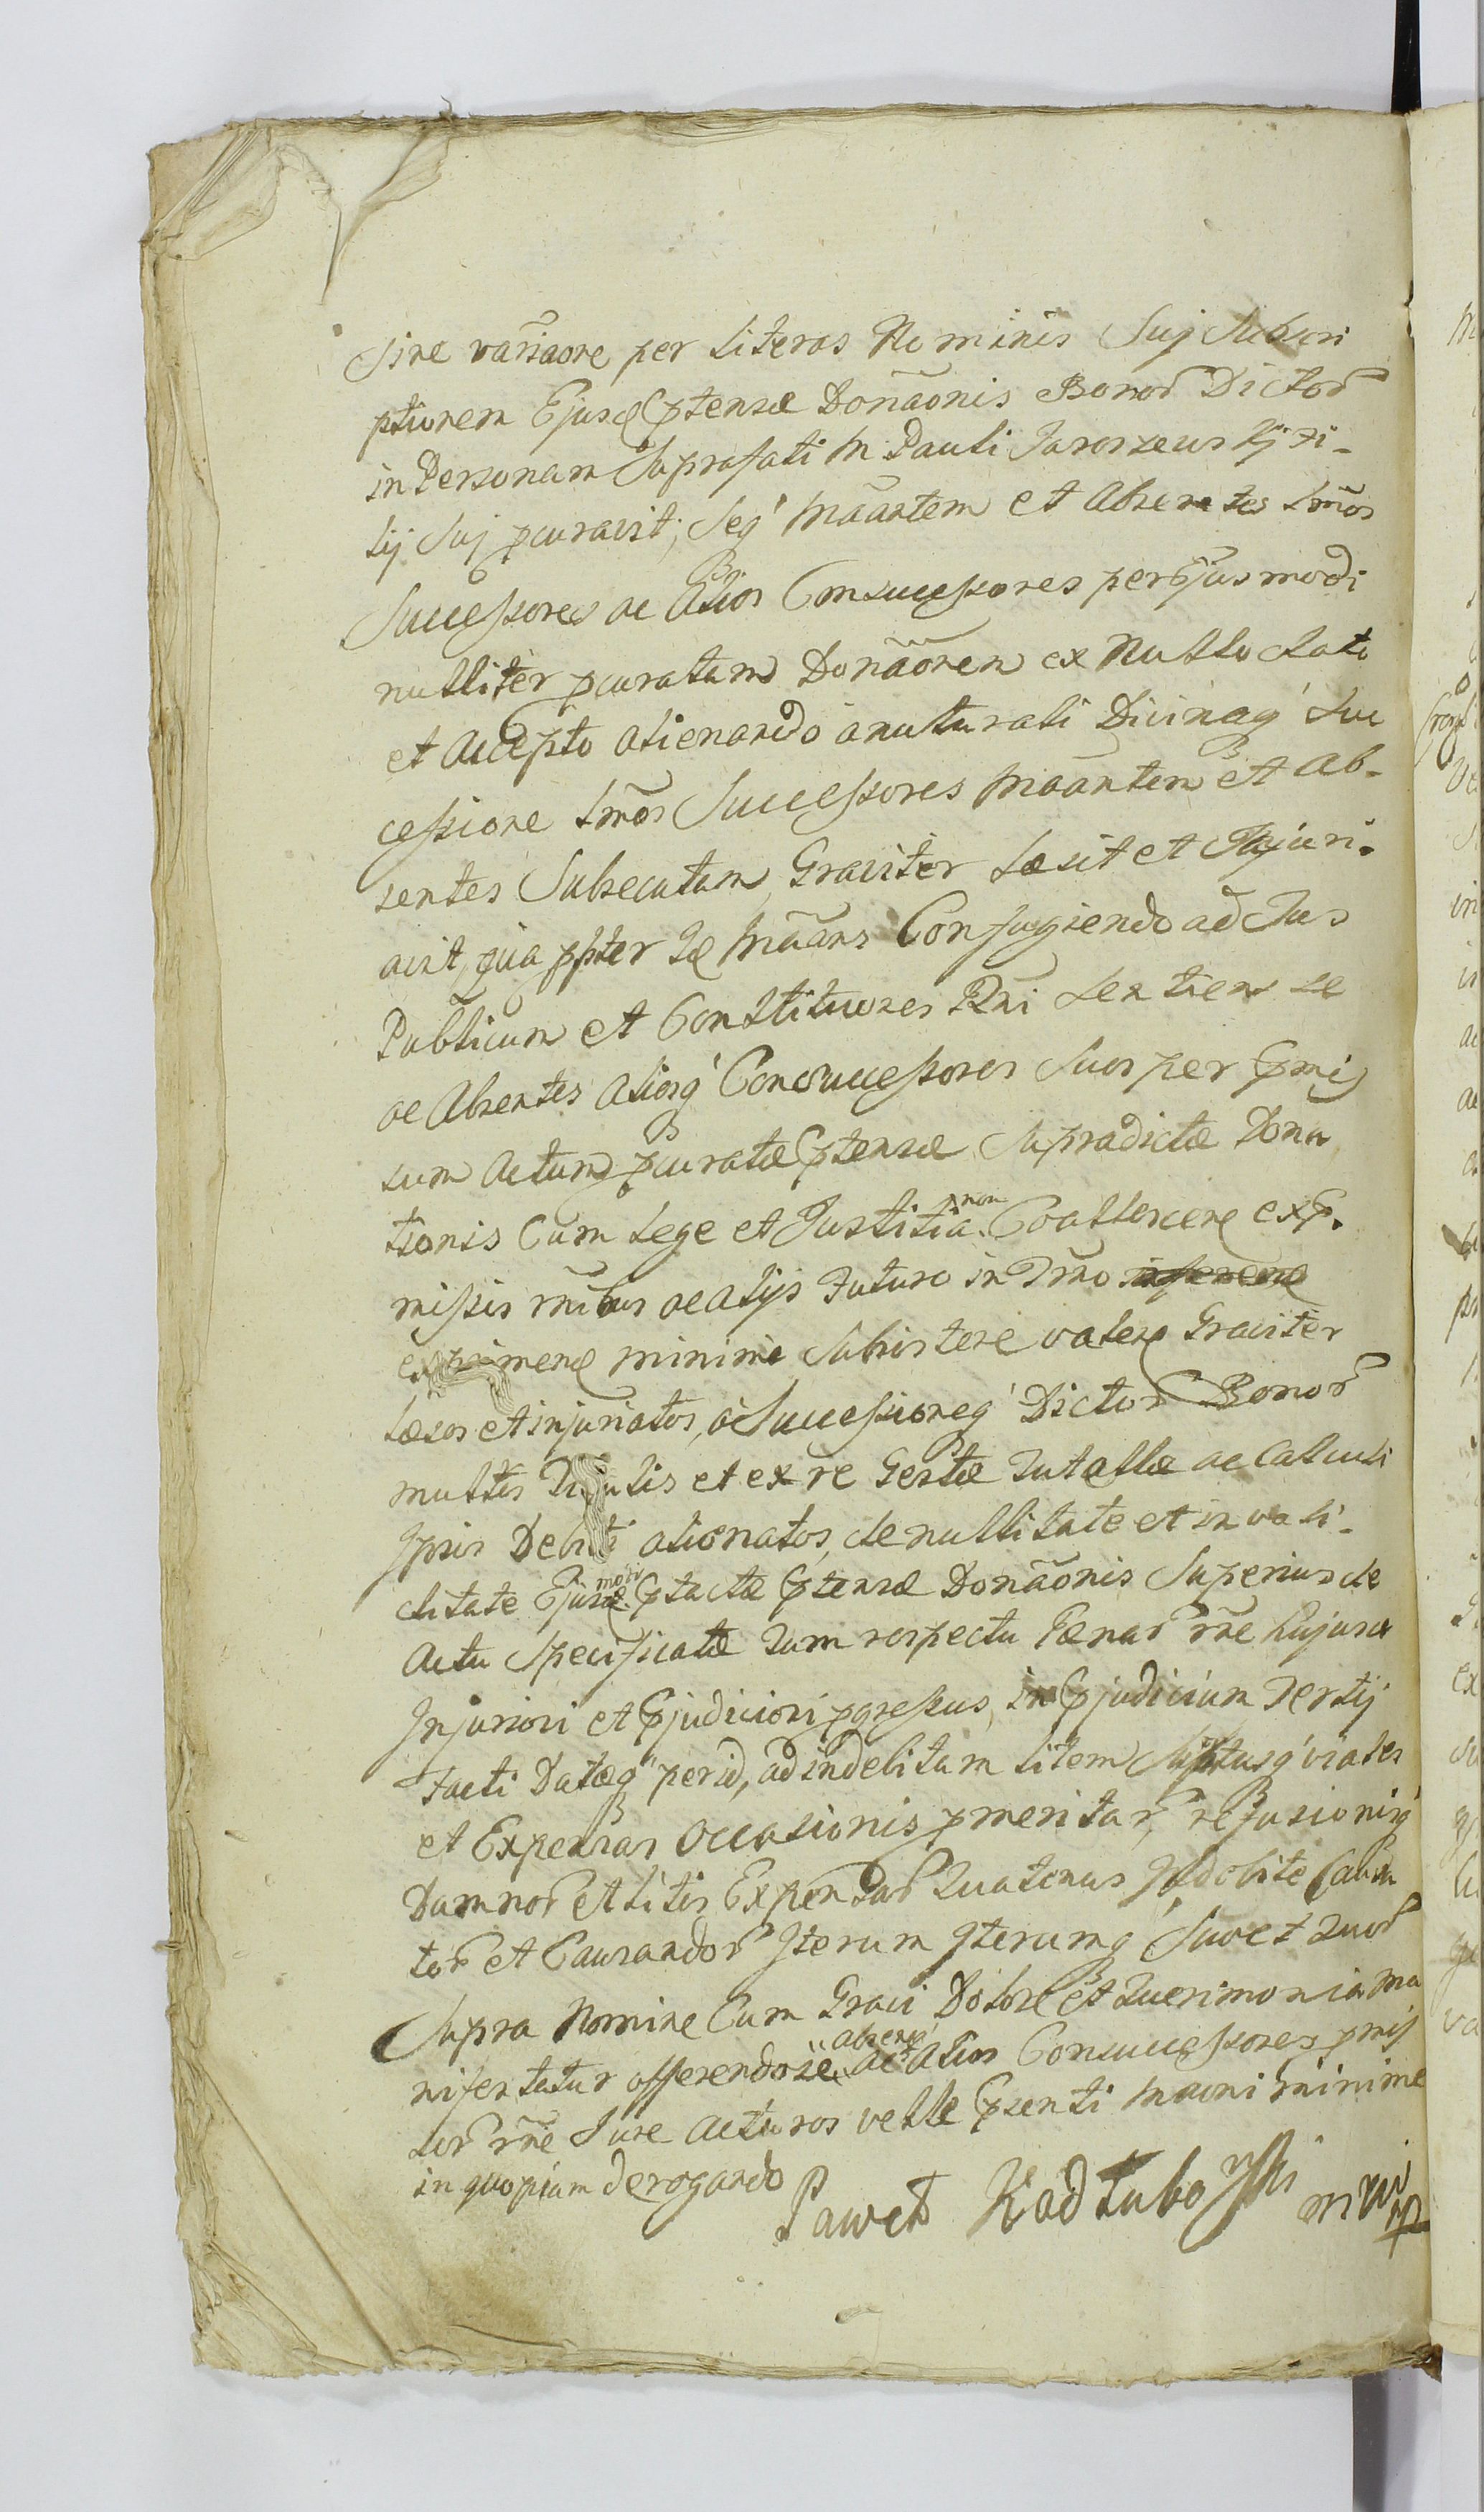 sine variaõne per literas Nominis Suj Subscri
ptionem Ejusd Ptensæ Donãonis Bonor Dictor
in Personam Suprafati M Pauli Jaroszewskj Fi-
lij Suj pcuravit, Seq Mãantem et Absentes Lmõs
Successores ac Alios Consuccessores per Ejusmodi
nulliter pcuratam Donãonem ex Nullo dato
et accepto alienando a naturali Divinaq Suc
cessione Lmõs Successores Mãantem et Ab-
sentes Subsecutam, Graviter Læsit et Injuri-
avit, qua ppter Id Mãans Confugiendo ad Jus
Publicum et Constituiones Rni sentiens se
ac Absentes Aliosq Consuccessores Suos per Pmis
sum Actum pcuratæ Ptensæ Supradictæ Dona
tionis Cum Lege et Justitia non Coallescere ex P-
missis rñibus ac alijs Futuro in Tmõ
exprimend minime Subsistere valen Graviter
Læsos et injuriatos, a Successioneq Dictor Bonor
multis Titulis et ex re Gestæ Tutellæ ac Calculi
Ipsis Debiti alienatos, de nullitate et invali-
ditate Ejusmodi Ptactæ Ptensæ Donãonis Superius de
Actu Specificatæ Tum respectu Pænar rñe hujus
Injuriosi et Pjudiciosi pgressus, in Pjudicium Tertij
Facti Datæq per id, ad indebitam litem Sumptusq Viales
et Expensas Occasionis pmeritar, refusionisq
Damnor et Litis Expensar Quatenus Indebite Causa
tor et Causandor Iterum Iterumq Suo et Quor
Supra Nomine Cum Gravi Dolore et Querimonia Ma
nifestatur offerendo se absen ac Alios Consuccessores pmis
sor rñe Jure Acturos velle Psenti Maoni minime
in quopiam derogando
Paweł Kadłubowski mwp